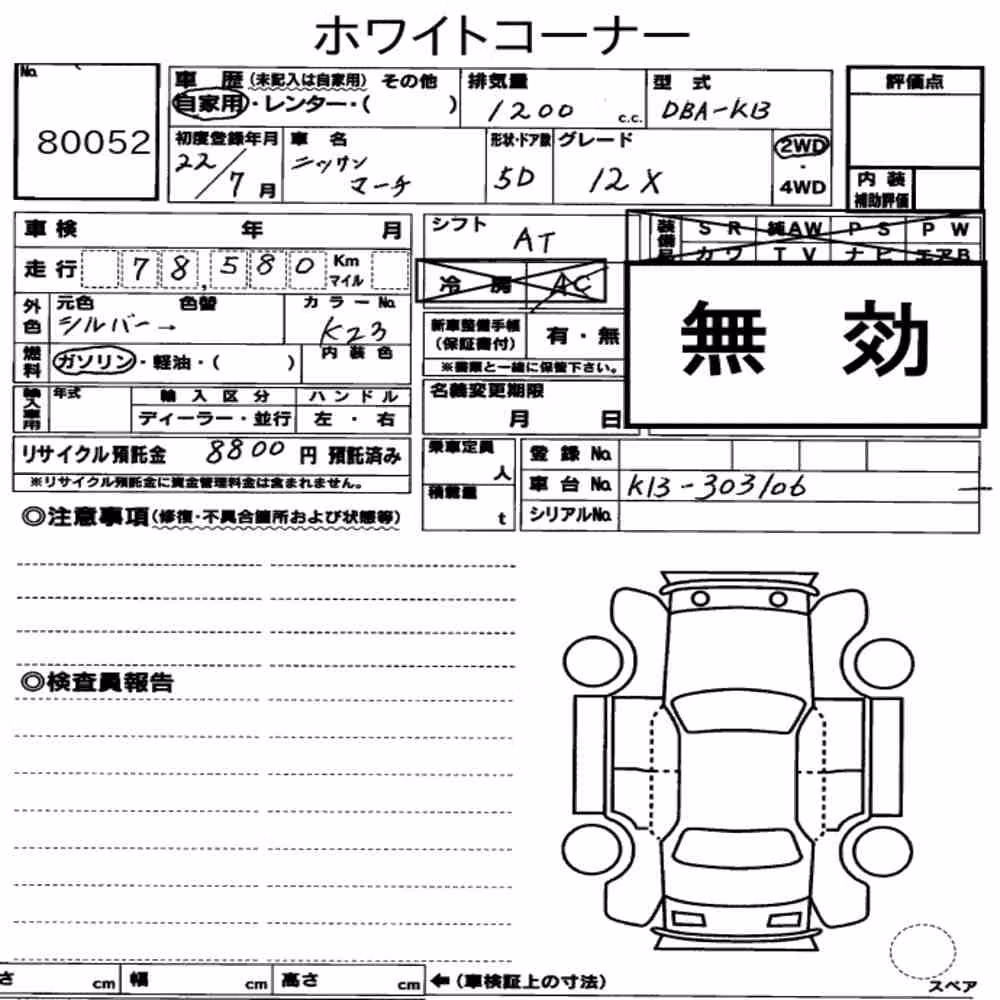 ホワイトコーナー
No.
80052
車歴 (未記入は自家用) その他
自家用・レンター・( )
排気量
1200 c.c.
型式
DBA-K13
評価点
初度登録年月
22/7月
車名
ニッサン
マーチ
形状・ドア数
5D
グレード
12X
2WD
・
4WD
内装
補助評価
車検 年 月
走行 78,580 Km
マイル
外色
元色 色替
シルバー→
カラーNo.
K23
燃料
ガソリン・軽油・( )
内装色
輸入車用
年式
輸入区分
ハンドル
ディーラー・並行
左・右
リサイクル預託金 8800 円 預託済み
※リサイクル預託金に資金管理料金は含まれません。
シフト
AT
冷房 AC
新車整備手帳
(保証書付)
有・無
※書類と一緒に保管下さい。
名義変更期限
月 日
装備
SR 純AW PS PW
カワ TV ナビ エアB
無効
乗車定員
人
積載量
t
登録No.
車台No. K13-303106
シリアルNo.
◎注意事項(修復・不具合箇所および状態等)
◎検査員報告
さ cm 幅 cm 高さ cm ←(車検証上の寸法)
スペア